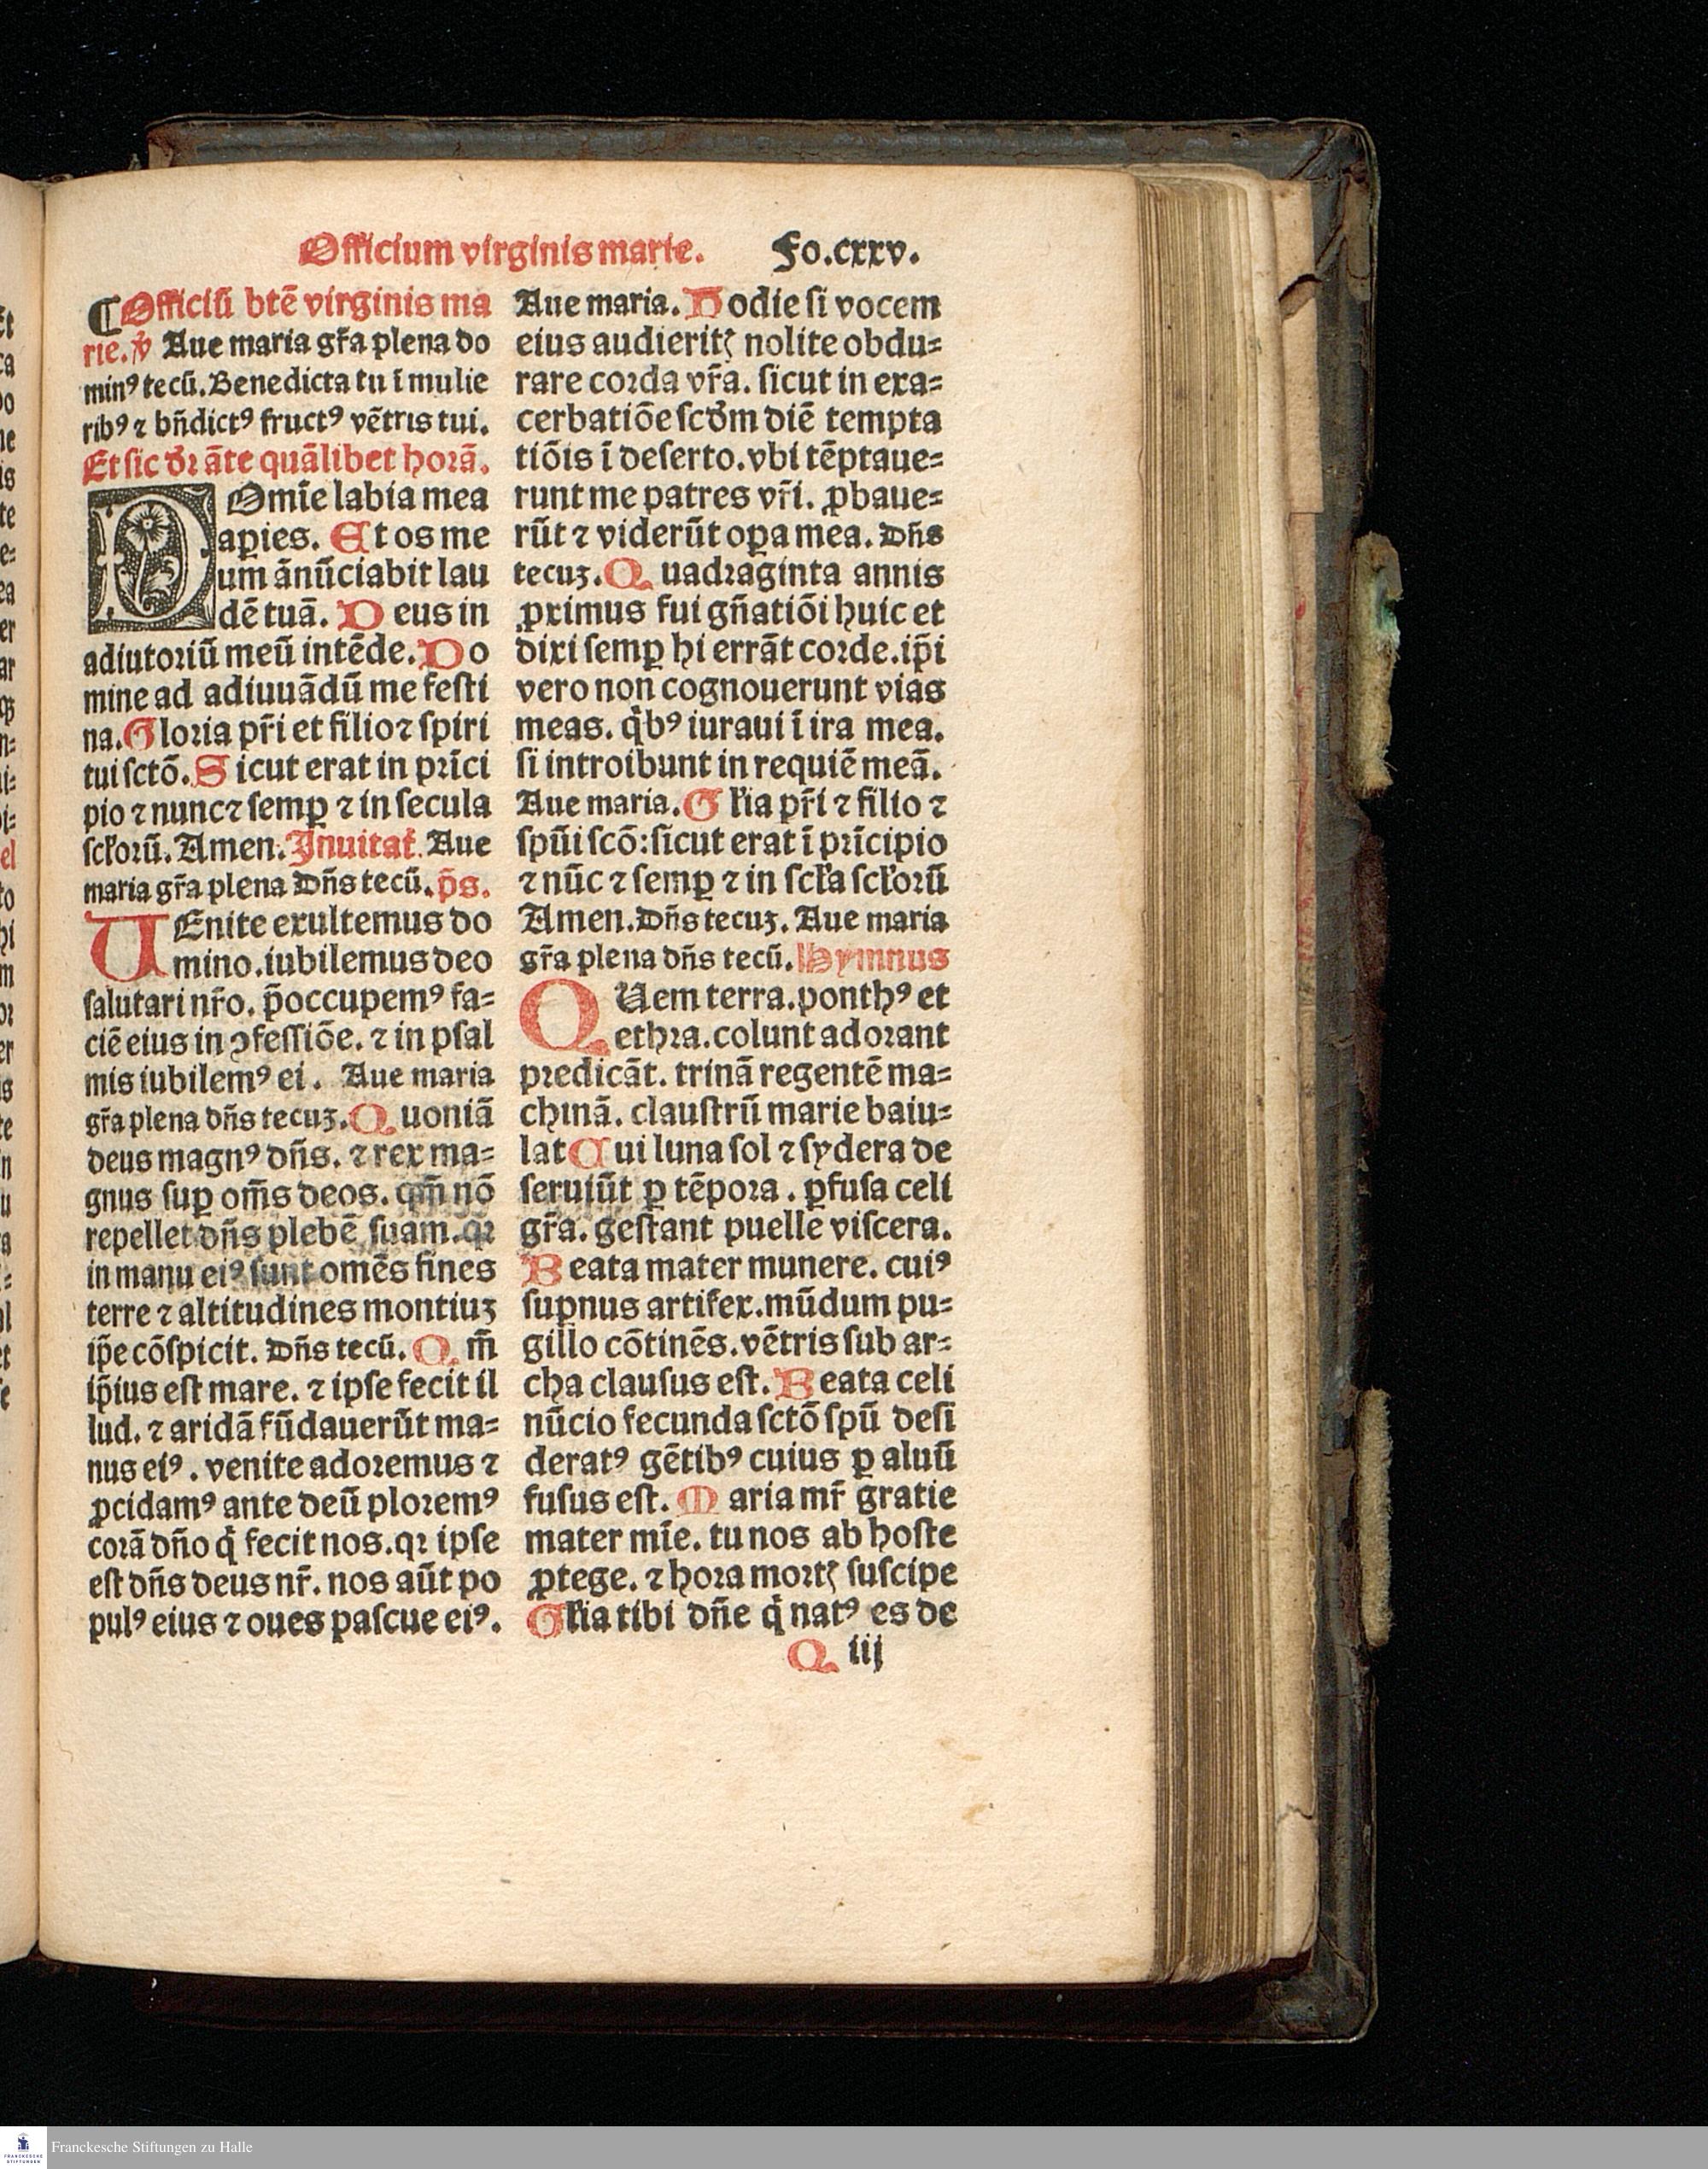 Officium virginis marie. Fo.cxxv.
¶Officiū btē virginis ma
rie. ꝟ Aue maria gr̄a plena do
minꝰ tecū. Benedicta tu ī mulie
ribꝰ ⁊ bn̄dictꝰ fructꝰ vētris tui.
Et sic dr̄ āte quālibet horā.
DOmīe labia mea
aꝑies. Et os me
um ānūciabit lau
dē tuā. Deus in
adiutoriū meū intēde. Do
mine ad adiuuādū me festi
na. Gloria pr̄i et filio ⁊ spiri
tui sctō. Sicut erat in prīci
pio ⁊ nunc ⁊ semꝑ ⁊ in secula
scłorū. Amen. Inuitat̄. Aue
maria gr̄a plena Dn̄s tecū. p̄s.
UEnite exultemus do
mino. iubilemus deo
salutari nr̄o. p̄occupemꝰ fa=
ciē eius in ꝯfessiōe. ⁊ in psal
mis iubilemꝰ ei. Aue maria
gr̄a plena dn̄s tecuꝫ. Quoniā
deus magnꝰ dn̄s. ⁊ rex ma=
gnus suꝑ om̄s deos. qm̄ nō
repellet dn̄s plebē suam. qꝛ
in manu eiꝰ sunt omēs fines
terre ⁊ altitudines montiuꝫ
ip̄e cōspicit. Dn̄s tecū. Qm̄
ip̄ius est mare. ⁊ ipse fecit il
lud. ⁊ aridā fūdauerūt ma=
nus eiꝰ. venite adoremus ⁊
ꝓcidamꝰ ante deū ploremꝰ
corā dn̄o q̇ fecit nos. qꝛ ipse
est dn̄s deus nr̄. nos aūt po
pulꝰ eius ⁊ oues pascue eiꝰ.
Aue maria. Hodie si vocem
eius audieritꝭ nolite obdu=
rare corda vr̄a. sicut in exa=
cerbatiōe scd̄m diē tempta
tiōis ī deserto. vbi tēptaue=
runt me patres vr̄i. ꝓbaue=
rūt ⁊ viderūt oꝑa mea. Dn̄s
tecuꝫ. Quadraginta annis
ꝓximus fui gn̄atiōi huic et
dixi semꝑ hi errāt corde. ip̄i
vero non cognouerunt vias
meas. q̇bꝰ iuraui ī ira mea.
si introibunt in requiē meā.
Aue maria. Głia pr̄i ⁊ filio ⁊
spūi scō: sicut erat ī prīcipio
⁊ nūc ⁊ semꝑ ⁊ in scła scłorū
Amen. Dn̄s tecuꝫ. Aue maria
gr̄a plena dn̄s tecū. Hymnus
QUem terra. ponthꝰ et
ethra. colunt adorant
predicāt. trinā regentē ma=
chinā. claustrū marie baiu=
lat Cui luna sol ⁊ sydera de
seruiūt ꝑ tēpora. ꝑfusa celi
gr̄a. gestant puelle viscera.
Beata mater munere. cuiꝰ
suꝑnus artifex. mūdum pu=
gillo cōtinēs. vētris sub ar=
cha clausus est. Beata celi
nūcio fecunda sctō spū desi
deratꝰ gētibꝰ cuius ꝑ aluū
fusus est. Maria mr̄ gratie
mater mīe. tu nos ab hoste
ꝓtege. ⁊ hora mortꝭ suscipe
Głia tibi dn̄e q̇ natꝰ es de
Q iij
Franckesche Stiftungen zu Halle